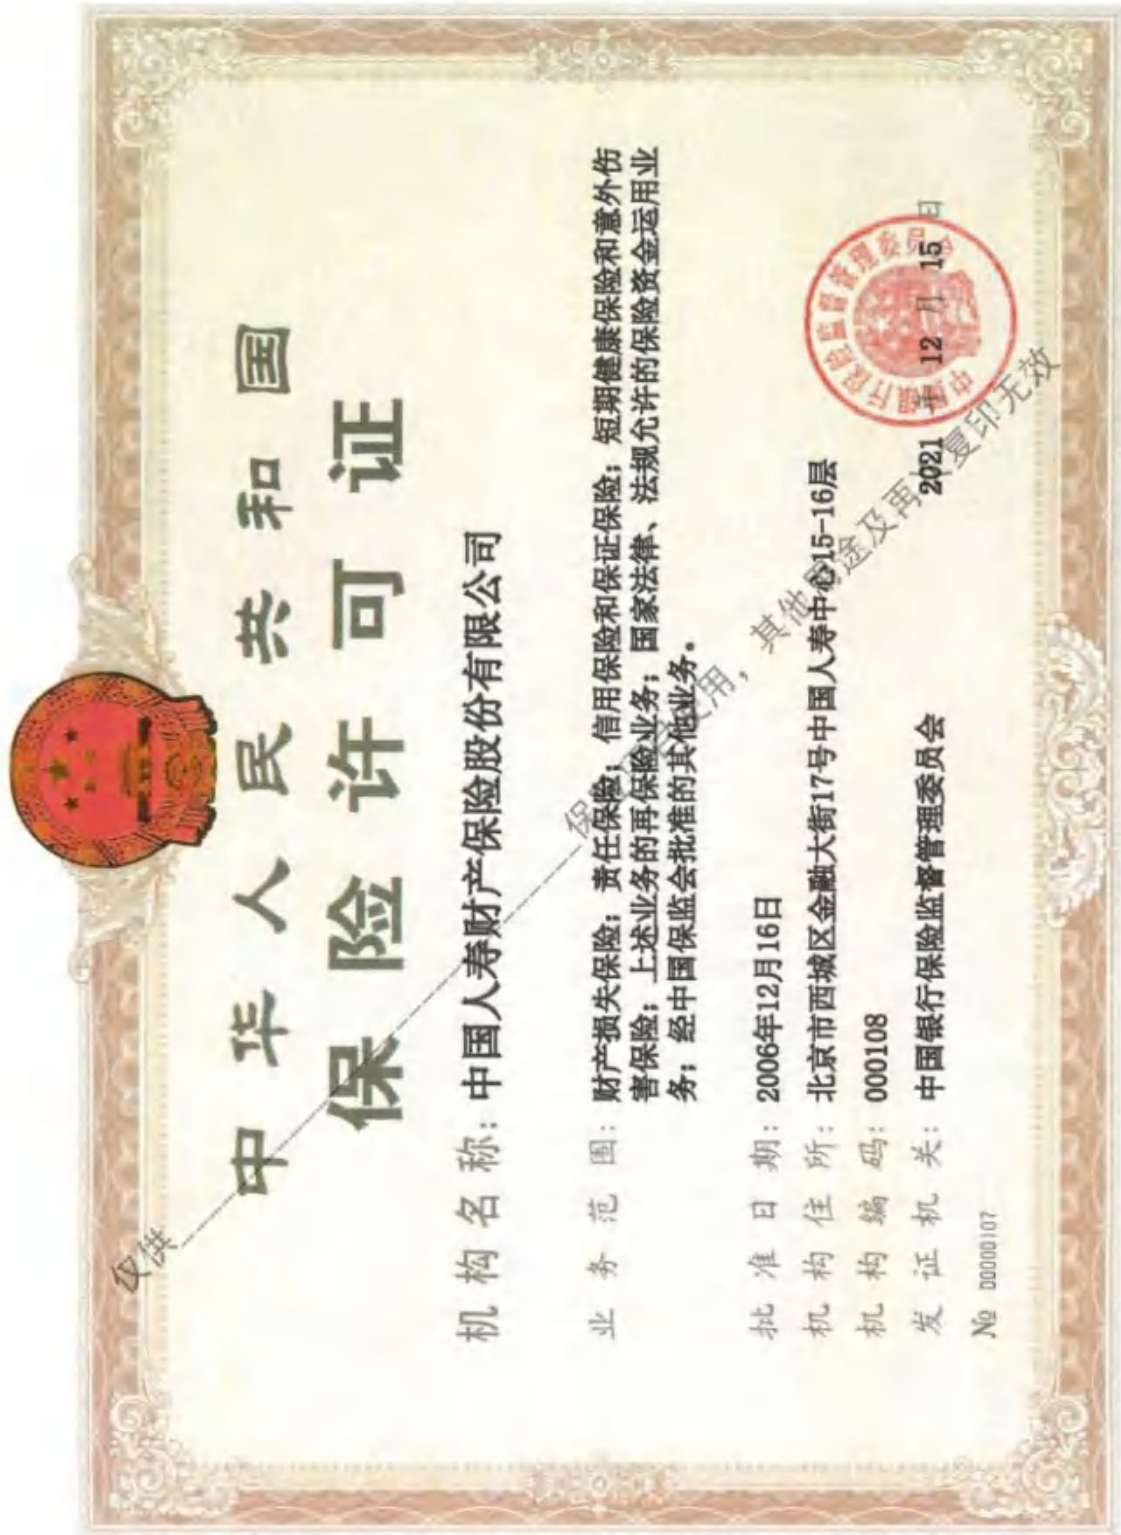 中华人民共和国
保险许可证
机构名称：中国人寿财产保险股份有限公司
业务范围：财产损失保险；责任保险；信用保险和保证保险；短期健康保险和意外伤
害保险；上述业务的再保险业务；国家法律、法规允许的保险资金运用业
务；经中国保监会批准的其他业务。
批准日期：2006年12月16日
机构住所：北京市西城区金融大街17号中国人寿中心15-16层
机构编码：000108
发证机关：中国银行保险监督管理委员会
2021年12月15日
№ 00000107
中国银行保险监督管理委员会
仅供
使用，其他用途及再次复印无效